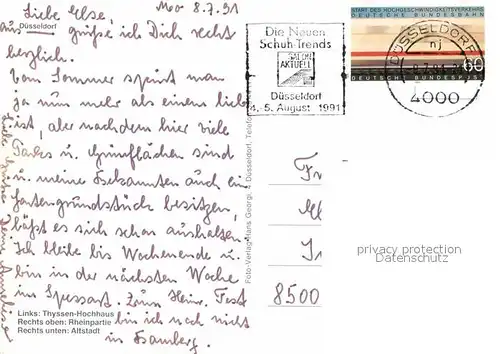 Mo 8.7.91
Liebe Else,
Düsseldorf
aus grüße ich Dich recht
herzlich.
Vom Sommer spürt man
ja nun mehr als einem lieb
ist, aber nachdem hier viele
Parks u. Grünflächen sind
u. meine Bekannten auch ein
Gartengrundstück besitzen,
läßt es sich schon aushalten.
Ich bleibe bis Wochenende u.
bin in der nächsten Woche
im Spessart. Zum Heinr. Fest
bin ich noch nicht
in Bamberg.
Links: Thyssen-Hochhaus
Rechts oben: Rheinpartie
Rechts unten: Altstadt
Foto-Verlag Hans Georgi, Düsseldorf, Telefon
Die Neuen
Schuh-Trends
AKTUELL
Düsseldorf
4.-5. August 1991
START DES HOCHGESCHWINDIGKEITSVERKEHRS
DEUTSCHE BUNDESBAHN
60
DEUTSCHE BUNDESPOST
DÜSSELDORF
nj
4000
8500
privacy protection
Datenschutz